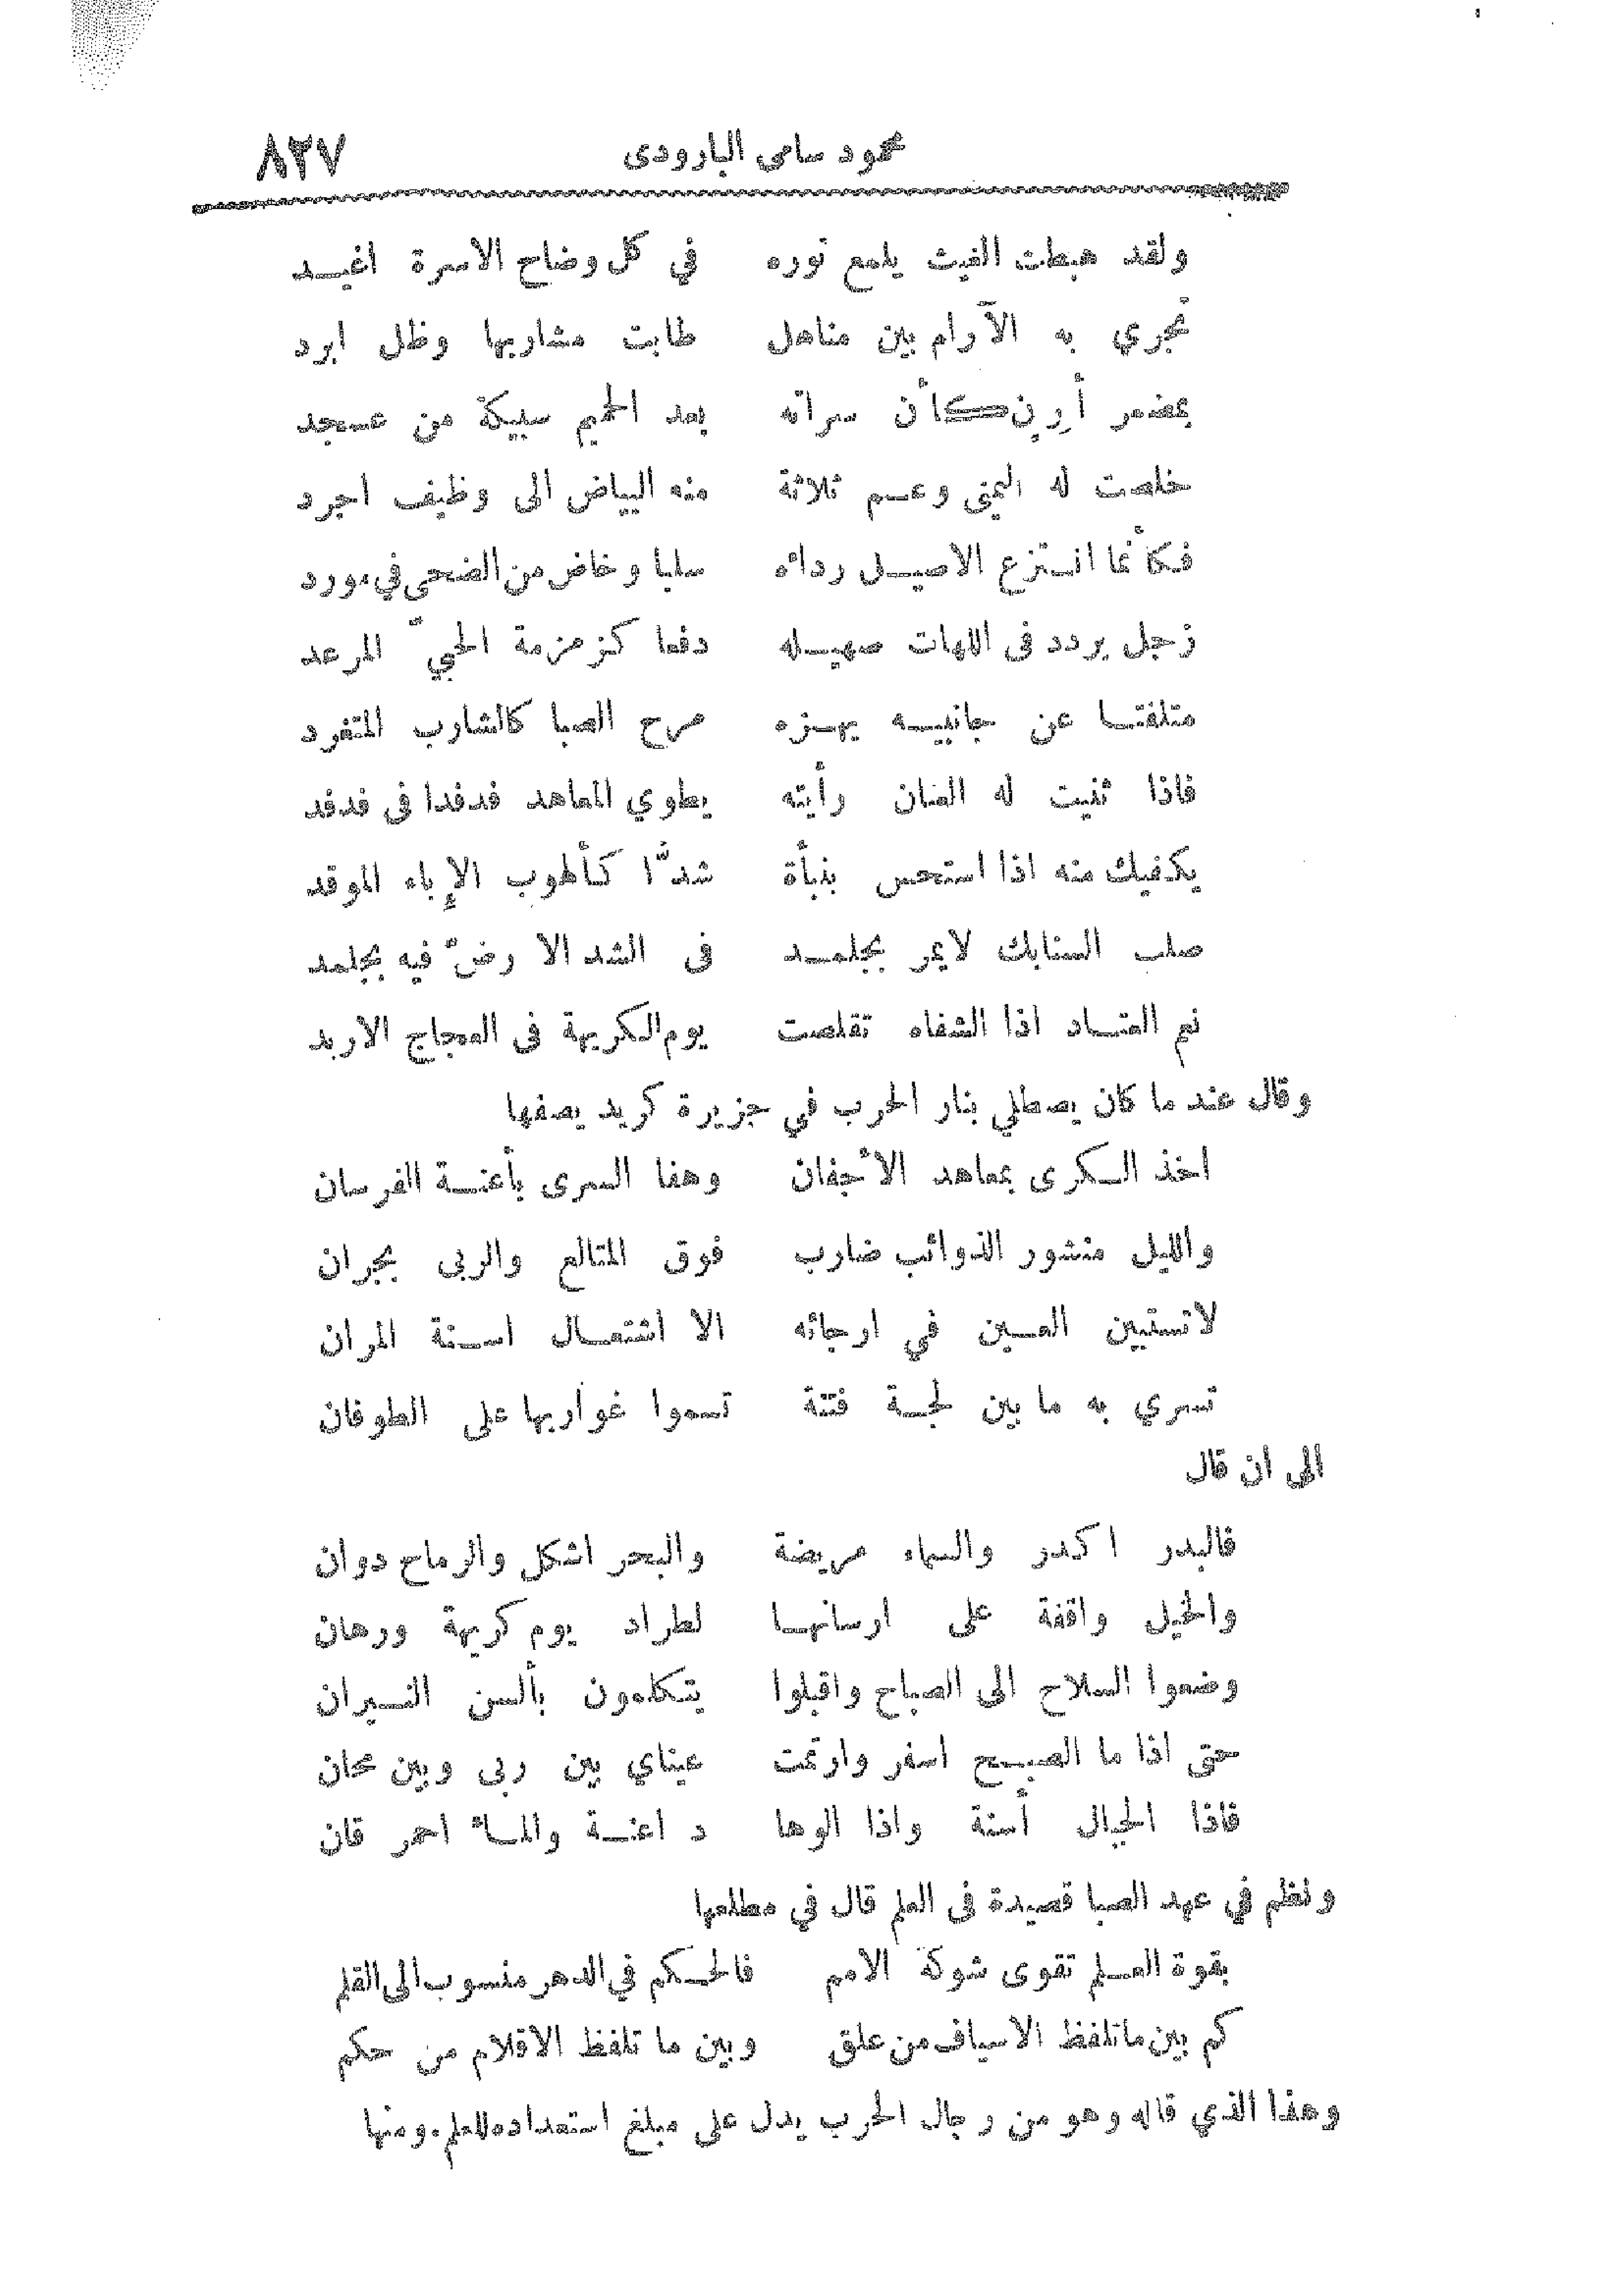 محمود سامى البارودى ٨٢٧
ولقد هبطت الغيث يلمع نوره في كل وضاح الاسرة اغيـد
تجري به الآرام بين مناهل طابت مشاربها وظل ابرد
بمضمر أرِنٍ كأن سراته بعد الحميم سبيكة من عسجد
خلصت له اليمنى وعم ثلاثة منه البياض الى وظيف اجرد
فكأنما انتزع الاصيل رداءه سلبا وخاض من الضحى في مورد
زجل يردد فى اللهات صهيله دفعا كزمزمة الحبيّ المرعد
متلفتا عن جانبيه يهزه مرح الصبا كالشارب المتغرد
فاذا ثنيت له العنان رأيته يطوي المعاهد فدفدا فى فدفد
يكفيك منه اذا استحس بنبأة شدًّا كألهوب الإباء الموقد
صلب السنابك لايمر بجلمد فى الشد الا رضّ فيه بجلمد
نعم العتاد اذا الشفاه تقلصت يوم الكريهة فى العجاج الاربد
وقال عند ما كان يصطلي بنار الحرب في جزيرة كريد يصفها
اخذ الكرى بمعاهد الأجفان وهفا السرى بأعنة الفرسان
والليل منشور الذوائب ضارب فوق المتالع والربى بجران
لاتستبين العين في ارجائه الا اشتعال اسنة المران
تسري به ما بين لجة فتنة تسموا غواربها على الطوفان
الى ان قال
فالبدر اكدر والسماء مريضة والبحر اشكل والرماح دوان
والخيل واقفة على ارسانها لطراد يوم كريهة ورهان
وضعوا السلاح الى الصباح واقبلوا يتكلمون بألسن النيران
حتى اذا ما الصبح اسفر وارتمت عيناي بين ربى وبين محان
فاذا الجبال أسنة واذا الوها د اعنة والماء احمر قان
ونظم في عهد الصبا قصيدة فى العلم قال في مطلعها
بقوة العلم تقوى شوكة الامم فالحكم في الدهر منسوب الى القلم
كم بين ما تلفظ الاسياف من علق وبين ما تلفظ الاقلام من حكم
وهذا الذي قاله وهو من رجال الحرب يدل على مبلغ استعداده للعلم. ومنها